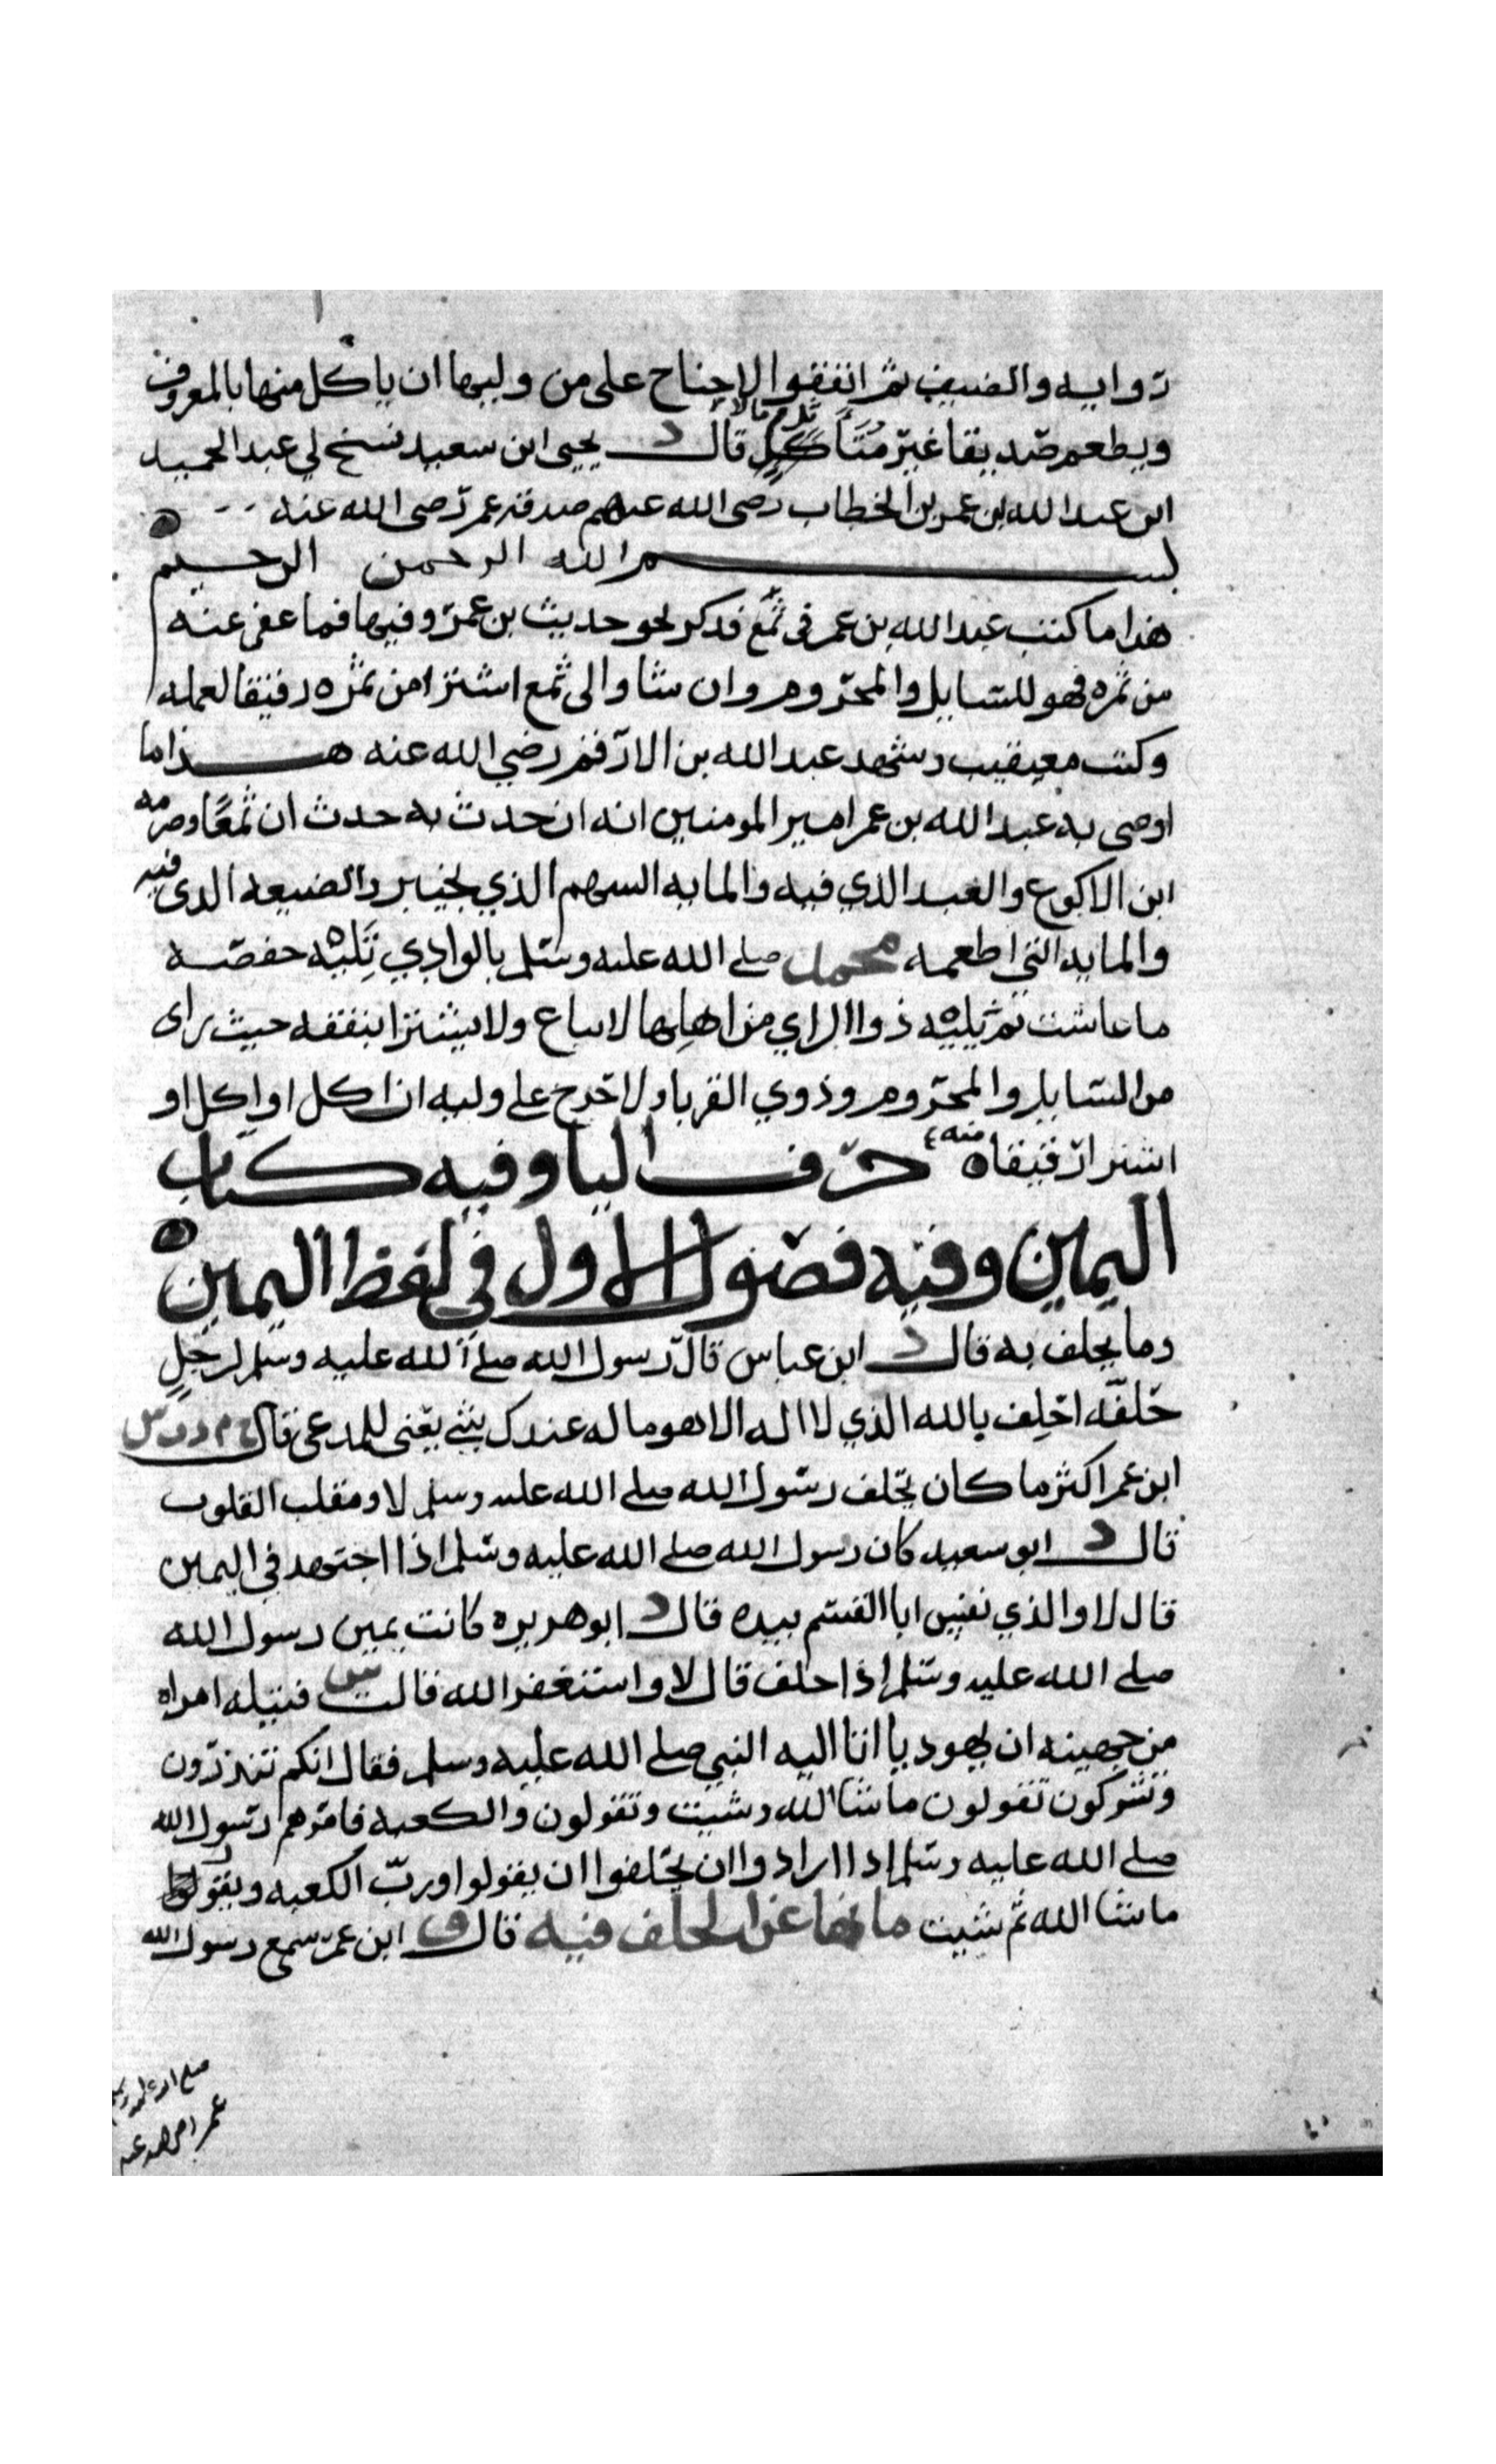 روايه والضيف ثم اتفقوا لاجناح على من وليها ان ياكل منها بالمعروف
ويطعم صديقا غير متأثل مالا قال د يحيى ابن سعيد نسخ لي عبد الحميد
ابن عبد الله بن عمر بن الخطاب رضى الله عنهم صدقه عمر رضى الله عنه
بسم الله الرحمن الرحيم
هذا ما كتب عبد الله بن عمر فى ثمغ فذكر نحو حديث بن عمر وفيها فما عفى عنه
من ثمره فهو للسايل والمحروم وان شا والى ثمغ اشترا من ثمره رقيقا لعمله
وكتب معيقيب وشهد عبد الله بن الارقم رضي الله عنه هذا ما
اوصى به عبد الله بن عمر امير المومنين انه ان حدث به حدث ان ثمغا وصرمه
ابن الاكوع والعبد الذي فيه والمايه السهم الذي بخيبر والضيعه الذى فيه
والمايه التي اطعمه محمد صلى الله عليه وسلم بالوادي تليه حفصه
ما عاشت ثم يليه ذوا الراي من اهلها لا يباع ولا يشترا ينفقه حيث راى
من السايل والمحروم وذوي القربا ولا حرج على وليه ان اكل او اكل او
اشترا رقيقا منه حرف اليا وفيه كتاب
اليمين وفيه فصول الاول في لفظ اليمين
وما يحلف به قال د ابن عباس قال رسول الله صلى الله عليه وسلم لرجل
حلفه احلف بالله الذي لا اله الا هو ما له عندك شي يعني للمدعى قال خ م د ت س
ابن عمر اكثر ما كان يحلف رسول الله صلى الله عليه وسلم لا ومقلب القلوب
قال د ابو سعيد كان رسول الله صلى الله عليه وسلم اذا اجتهد في اليمين
قال لا والذي نفس ابا القسم بيده قال د ابو هريره كانت يمين رسول الله
صلى الله عليه وسلم اذا حلف قال لا واستغفر الله قالت س قتيله امراه
من جهينه ان يهوديا اتا اليه النبي صلى الله عليه وسلم فقال انكم تنذرون
وتشركون تقولون ما شا الله وشيت وتقولون والكعبه فامرهم رسول الله
صلى الله عليه وسلم اذا ارادوا ان يحلفوا ان يقولوا ورب الكعبه ويقولوا
ما شا الله ثم شيت ما نها عن الحلف فيه قال ق ابن عمر سمع رسول الله
صلى الله عليه وسلم
عمر رضى الله عنه